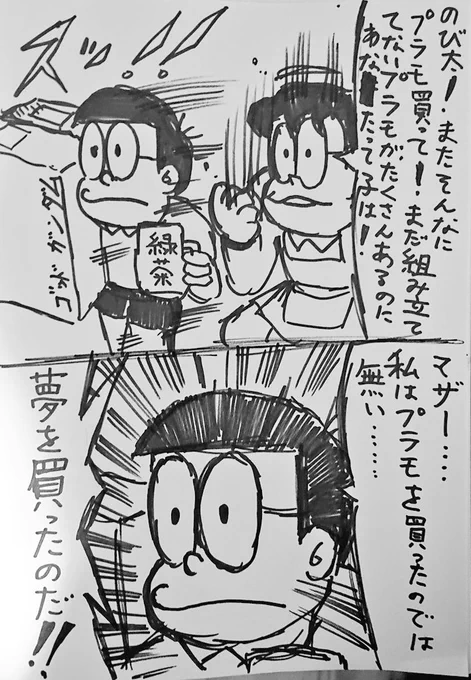 のび太!またそんなに
プラモ買って!まだ組み立て
てないプラモがたくさんあるのに
あなたって子は!
緑
茶
マザー……
私はプラモを買ったのでは
無い……
夢を買ったのだ!!